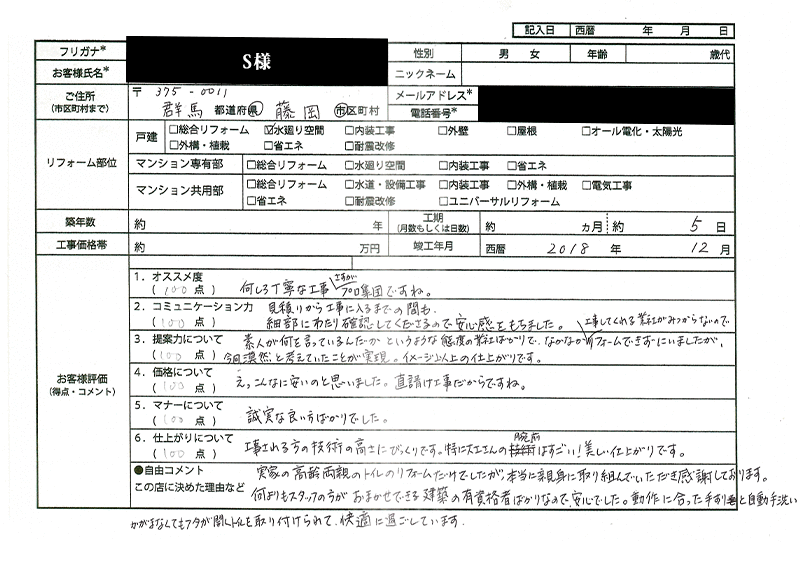 記入日 西暦 年 月 日
フリガナ* S様 性別 男 女 年齢 歳代
お客様氏名* ニックネーム
ご住所 〒 375-0011 メールアドレス*
(市区町村まで) 群馬 都道府県 藤岡 市区町村 電話番号*
リフォーム部位
戸建 □総合リフォーム ☑水廻り空間 □内装工事 □外壁 □屋根 □オール電化・太陽光
□外構・植栽 □省エネ □耐震改修
マンション専有部 □総合リフォーム □水廻り空間 □内装工事 □省エネ
マンション共用部 □総合リフォーム □水道・設備工事 □内装工事 □外構・植栽 □電気工事
□省エネ □耐震改修 □ユニバーサルリフォーム
築年数 約 年 工期 (月数もしくは日数) 約 ヵ月 約 5 日
工事価格帯 約 万円 竣工年月 西暦 2018 年 12 月
お客様評価
(得点・コメント)
1. オススメ度
(100 点) 何しろ丁寧な工事 さすがプロ集団ですね。
2. コミュニケーション力 見積りから工事に入るまでの間も、
(100 点) 細部にわたり確認してくださるので安心感をもちました。
3. 提案力について 素人が何を言っているんだか というような態度の業社ばかりで、なかなか 工事してくれる業社がみつからないので リフォームできずにいましたが、
(100 点) 今回漠然と考えていたことが実現。イメージ以上の仕上がりです。
4. 価格について
(100 点) えっこんなに安いのと思いました。直請け工事だからですね。
5. マナーについて
(100 点) 誠実な良い方ばかりでした。
6. 仕上がりについて
(100 点) 工事される方の技術の高さにびっくりです。特に大工さんの技術 腕前 はすごい!美しい仕上がりです。
●自由コメント 実家の高齢両親のトイレのリフォームだけでしたが、本当に親身に取り組んでいただき感謝しております。
この店に決めた理由など 何よりもスタッフの方が おまかせできる 建築の有資格者ばかりなので、安心でした。動作に合った手すりと自動手洗い
かがまなくてもフタが開くトイレを取り付けられて、快適に過ごしています。